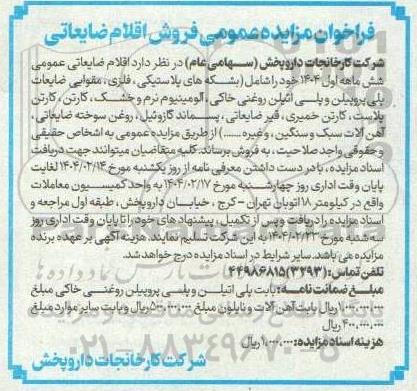 فراخوان مزایده عمومی فروش اقلام ضایعاتی
شرکت کارخانجات داروپخش (سهامی عام) در نظر دارد اقلام ضایعاتی عمومی
شش ماهه اول ۱۴۰۴ خود را شامل (بشکه های پلاستیکی ، فلزی، مقوایی ضایعات
پلی پروپیلن و پلی اتیلن روغنی خاکی، آلومینیوم نرم و خشک، کارتن، کارتن
پلاست، کارتن خمیری، قیر ضایعاتی، پسماند گازوئیل، روغن سوخته ضایعاتی،
آهن آلات سبک و سنگین ، و غیره ......) از طریق مزایده عمومی به اشخاص حقیقی
و حقوقی واجد صلاحیت ، به فروش برساند. کلیه متقاضیان میتوانند جهت دریافت
اسناد مزایده ، با در دست داشتن معرفی نامه از روز یکشنبه مورخ ۱۴۰۴/۰۲/۱۴ لغایت
پایان وقت اداری روز چهارشنبه مورخ ۱۴۰۴/۰۲/۱۷ به واحد کمیسیون معاملات
واقع در کیلومتر ۱۸ اتوبان تهران - کرج ، خیابان داروپخش، طبقه اول مراجعه و
اسناد مزایده را دریافت و پس از تکمیل ، پیشنهاد های خود را تا پایان وقت اداری روز
سه شنبه مورخ ۱۴۰۴/۰۲/۲۳ به این شرکت تسلیم نمایند. هزینه آگهی بر عهده برنده
مزایده می باشد. سایر شرایط در اسناد مزایده درج خواهد شد.
تلفن تماس: (۳۲۹۳)۴۴۹۸۶۸۱۵
مبلغ ضمانت نامه: بابت پلی اتیلن و پلی پروپیلن روغنی خاکی مبلغ
۱,۰۰۰,۰۰۰,۰۰۰ ریال بابت آهن آلات و نایلون مبلغ ۵۰۰,۰۰۰,۰۰۰ ریال و بابت سایر موارد مبلغ
۴۰۰,۰۰۰,۰۰۰ ریال
هزینه اسناد مزایده: ۱,۰۰۰,۰۰۰ ریال
شرکت کارخانجات داروپخش
۰۲۱-۸۸۳۴۹۶۷۰-۵